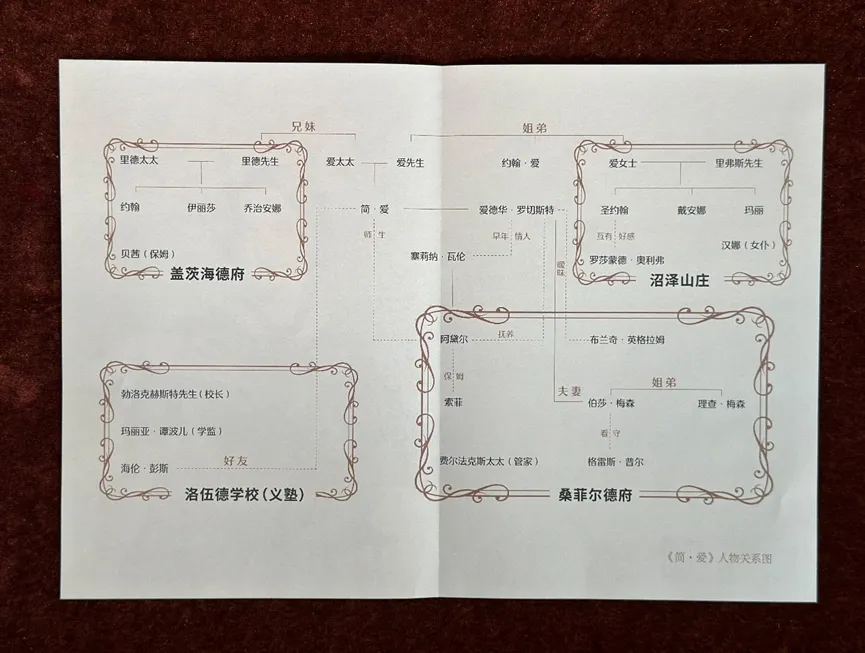 兄妹
姐弟
里德太太 里德先生 爱太太 爱先生 约翰·爱 爱女士 里弗斯先生
约翰 伊丽莎 乔治安娜 简·爱 爱德华·罗切斯特 圣约翰 戴安娜 玛丽
师生 早年情人 互有好感
贝茜(保姆) 塞莉纳·瓦伦 暧昧 罗莎蒙德·奥利弗 汉娜(女仆)
盖茨海德府 沼泽山庄
阿黛尔 抚养 布兰奇·英格拉姆
保姆 夫妻 姐弟
勃洛克赫斯特先生(校长) 索菲 伯莎·梅森 理查·梅森
玛丽亚·谭波儿(学监) 看守
海伦·彭斯 好友 费尔法克斯太太(管家) 格雷斯·普尔
洛伍德学校(义塾) 桑菲尔德府
《简·爱》人物关系图